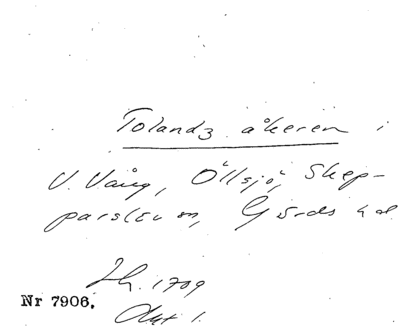 Tolandz åkeren i
V. Vång, Öllsjö, Skep-
parslöv sn, Gärds hd
Jb. 1709
Nr 7906.
Akt 1.